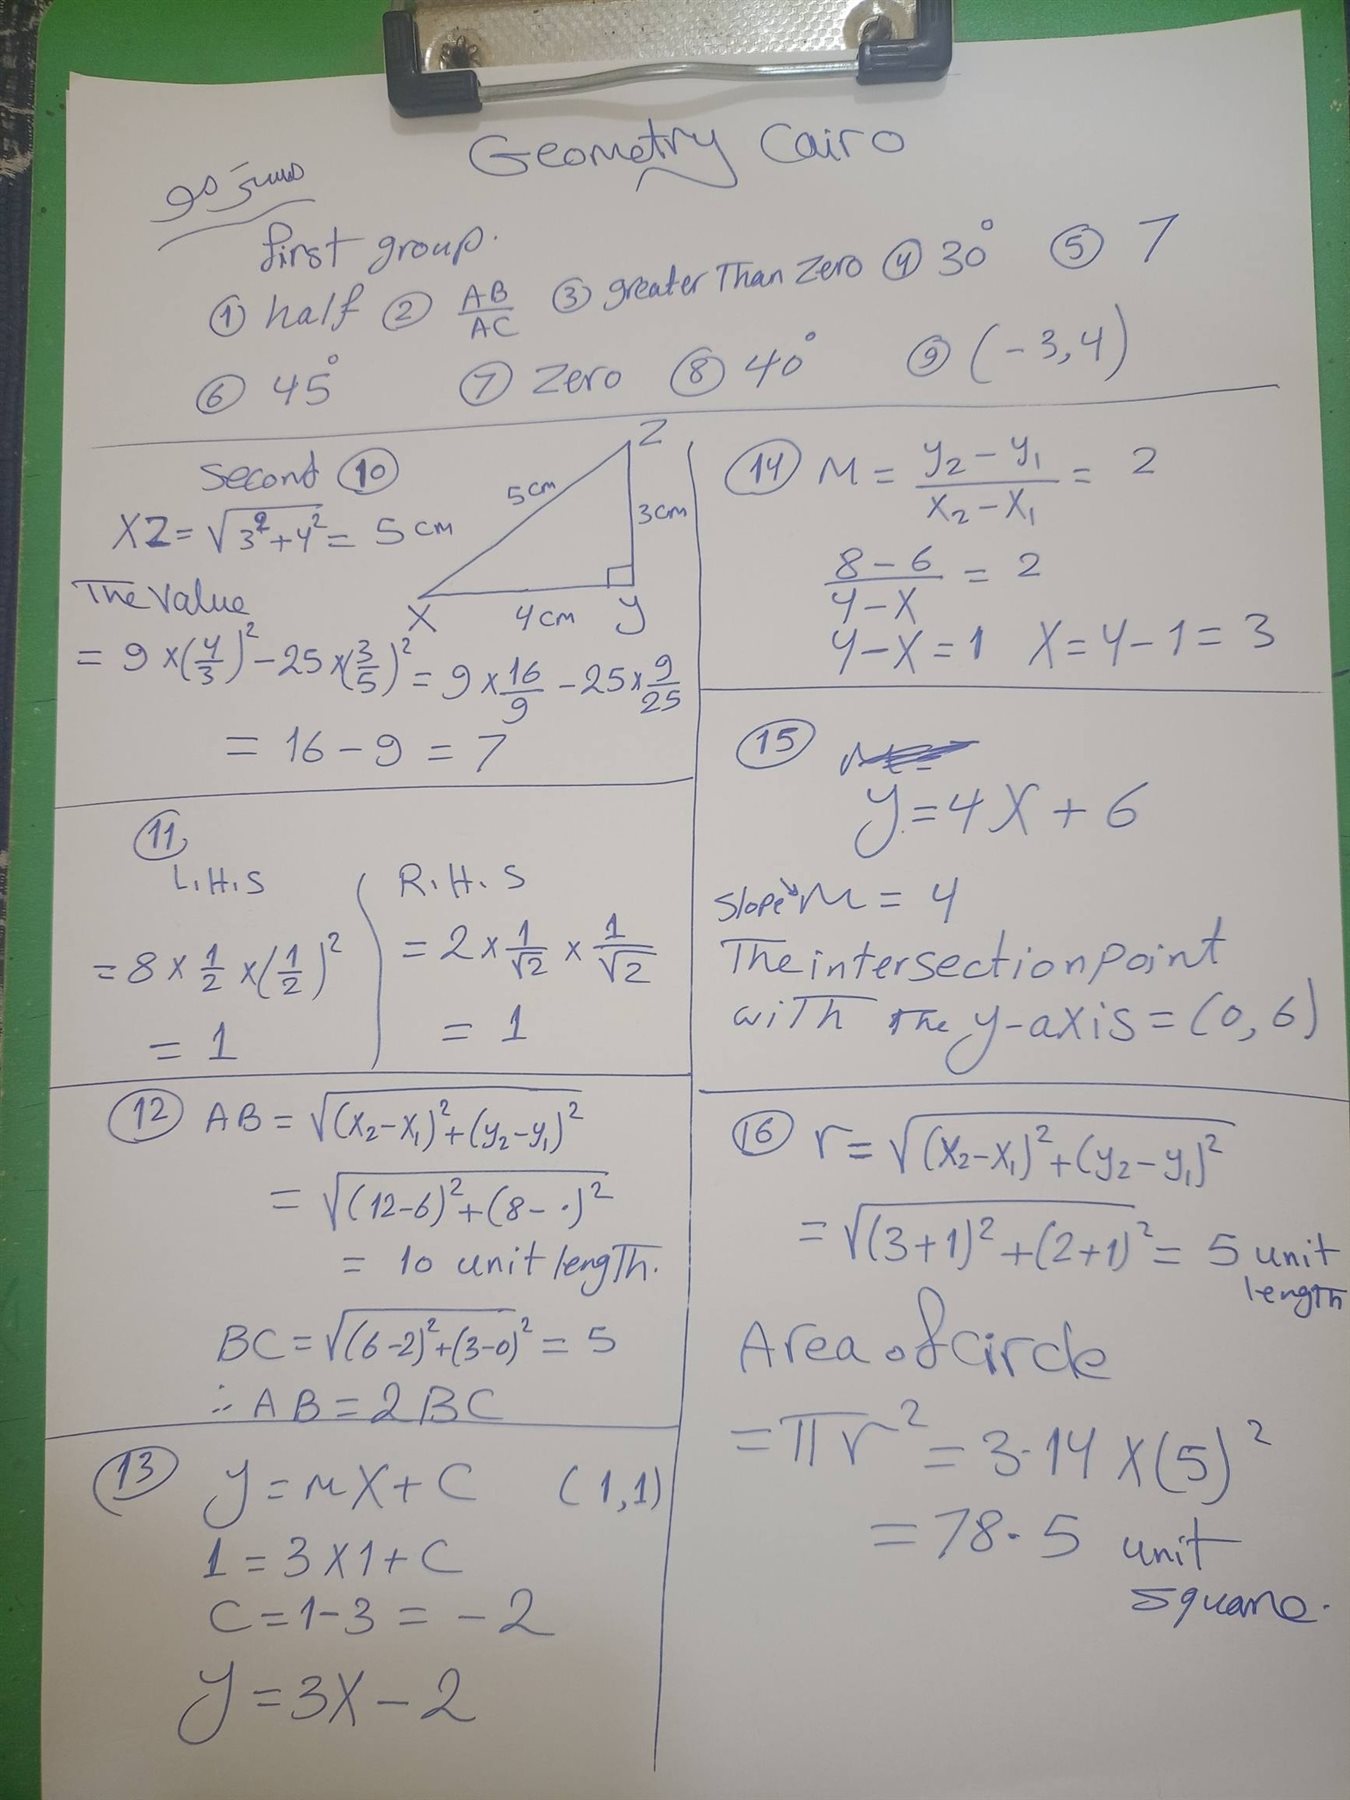 Geometry Cairo
first group.
① half ② AB/AC ③ greater Than Zero ④ 30° ⑤ 7
⑥ 45° ⑦ Zero ⑧ 40° ⑨ (-3,4)
Second ⑩
XZ = √(3²+4²) = 5 cm
Z
5 cm
3 cm
X 4 cm y
The Value
= 9 × (4/3)² - 25 × (3/5)² = 9 × 16/9 - 25 × 9/25
= 16 - 9 = 7
⑪
L.H.S
= 8 × 1/2 × (1/2)²
= 1
R.H.S
= 2 × 1/√2 × 1/√2
= 1
⑫ AB = √((x₂-x₁)²+(y₂-y₁)²)
= √((12-6)²+(8-·)²)
= 10 unit length.
BC = √((6-2)²+(3-0)²) = 5
∴ AB = 2BC
⑬ y = mX + C (1,1)
1 = 3 X 1 + C
C = 1 - 3 = -2
y = 3X - 2
⑭ M = (y₂-y₁)/(x₂-x₁) = 2
(8-6)/(4-X) = 2
4-X = 1 X = 4-1 = 3
⑮
y = 4X + 6
Slope M = 4
The intersection point
with the y-axis = (0,6)
⑯ r = √((x₂-x₁)²+(y₂-y₁)²)
= √((3+1)²+(2+1)²) = 5 unit
length
Area of circle
= πr² = 3.14 X (5)²
= 78.5 unit
square.